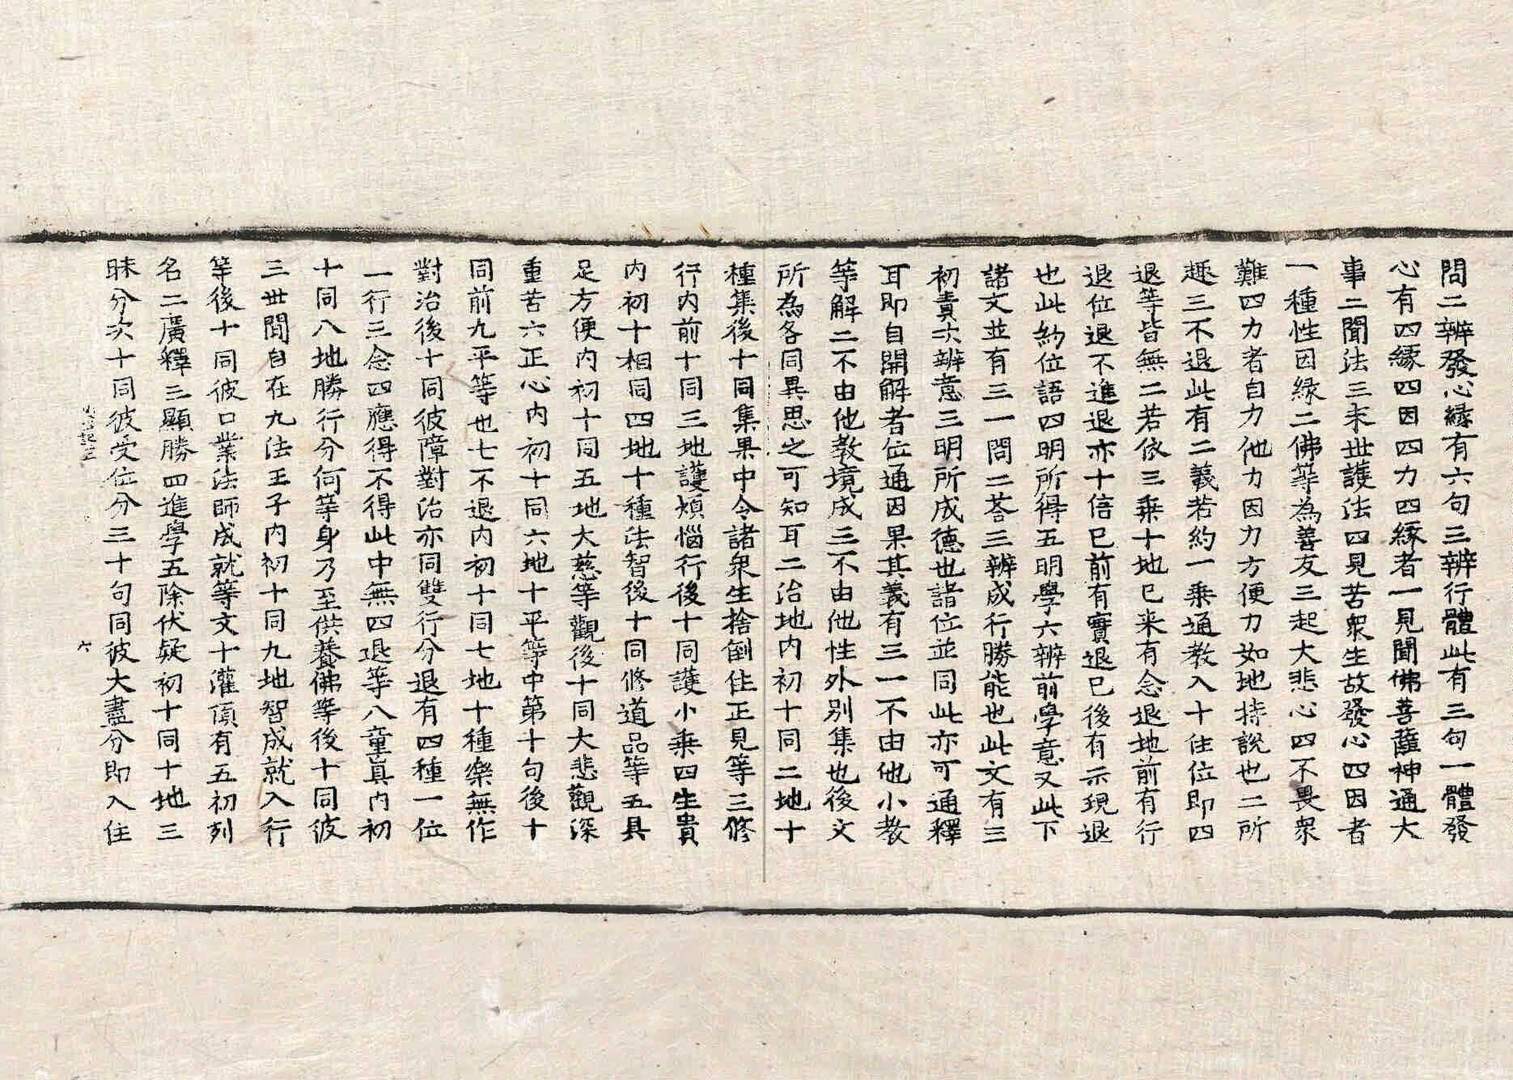 問二辨發心緣有六句三辨行體此有三句一體發
心有四緣四因四力四緣者一見聞佛菩薩神通大
事二聞法三末世護法四見苦衆生故發心四因者
一種性因緣二佛等為善友三起大悲心四不畏衆
難四力者自力他力因力方便力如地持說也二所
趣三不退此有二義若約一乘通教入十住位即四
退等皆無二若依三乘十地已来有念退地前有行
退位退不進退亦十倍已前有實退已後有示現退
也此約位語四明所得五明學六辨前學意又此下
諸文並有三一問二荅三辨成行勝能也此文有三
初責次辨意三明所成德也諸位並同此亦可通釋
耳即自開解者位通因果其義有三一不由他小教
等解二不由他教境成三不由他性外別集也後文
所為各同異思之可知耳二治地内初十同二地十
種集後十同集果中令諸衆生捨倒住正見等三修
行内前十同三地護煩惱行後十同護小乘四生貴
内初十相同四地十種法智後十同修道品等五具
足方便内初十同五地大慈等觀後十同大悲觀深
重苦六正心内初十同六地十平等中第十句後十
同前九平等也七不退内初十同七地十種樂無作
對治後十同彼障對治亦同雙行分退有四種一位
一行三念四應得不得此中無四退等八童真内初
十同八地勝行分何等身乃至供養佛等後十同彼
三世間自在九法王子内初十同九地智成就入行
等後十同彼口業法師成就等文十灌頂有五初列
名二廣釋三顯勝四進學五除伏疑初十同十地三
昧分次十同彼受位分三十句同彼大盡分即入住
六